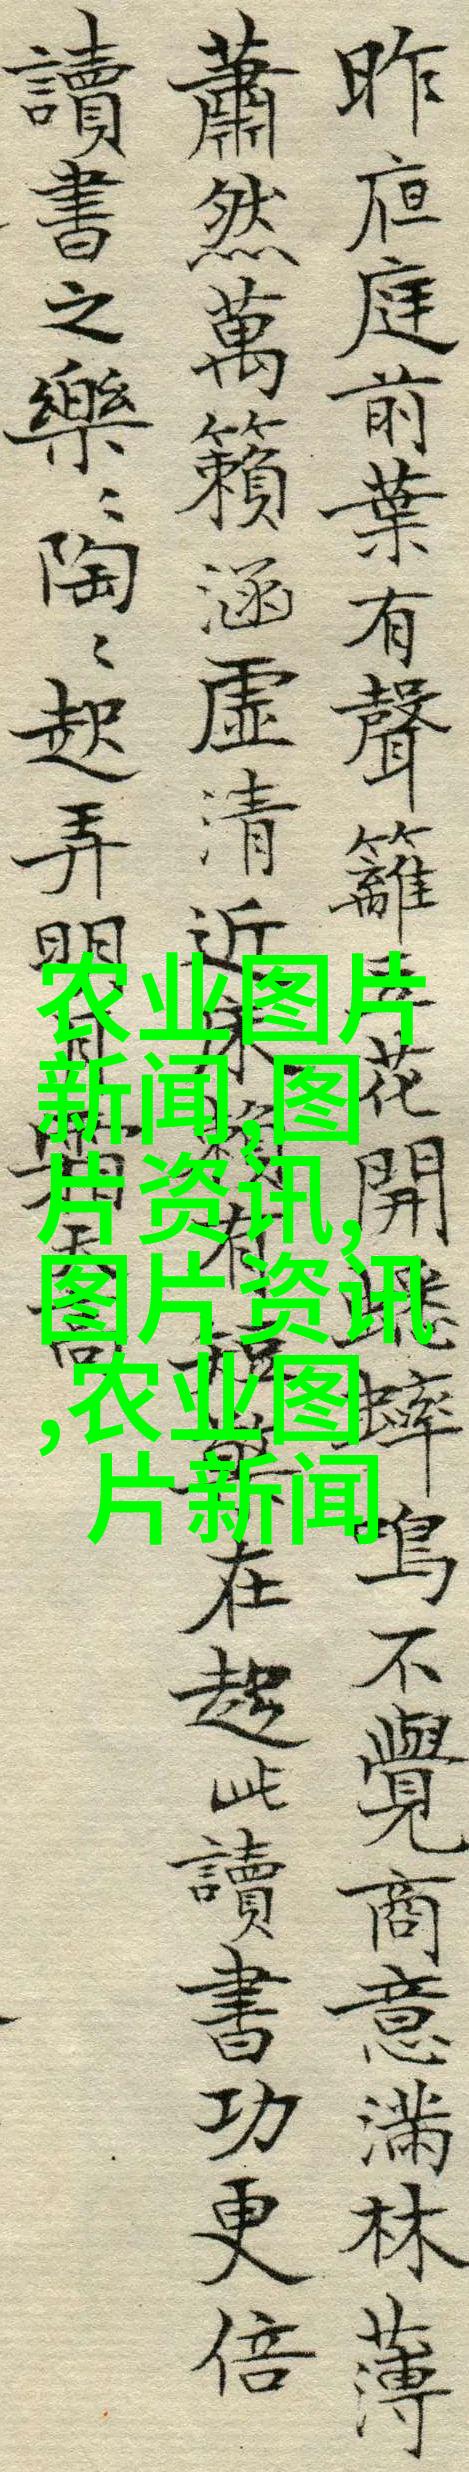 昨夜庭前葉有聲籬豆花開蟋蟀鳴不覺商意滿林薄
蕭然萬籟涵虛清近床賴有短檠在趁此讀書功更倍
讀書之樂〻陶〻起弄明月霜天高
农业图片
新闻,图
片资讯,
图片资讯
,农业图
片新闻